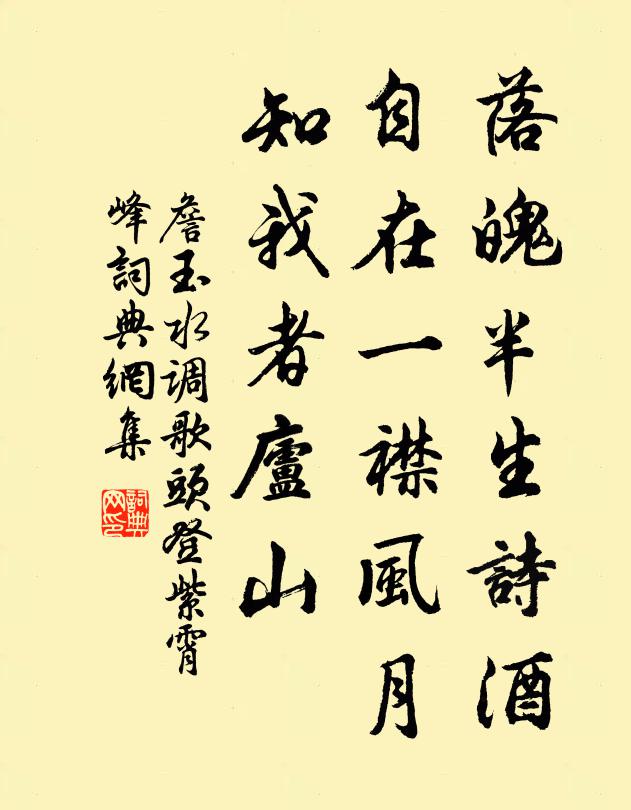 落魄半生詩酒
自在一襟風月
知我者廬山
詹玉水调歌頭登紫霄
峰詞典網集
詞典
网印